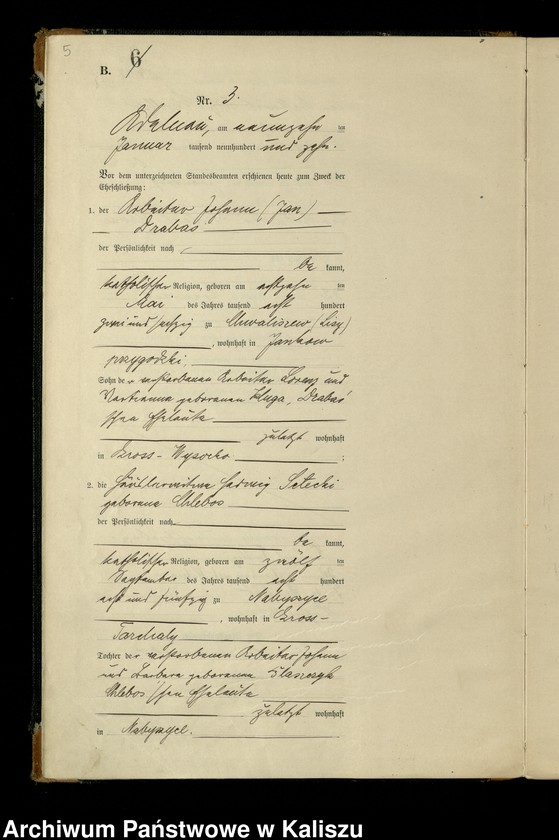 5
B. 6
Nr. 3.
Adelnau, am neunzehn ten
Januar tausend neunhundert und zehn.
Vor dem unterzeichneten Standesbeamten erschienen heute zum Zweck der
Eheschließung:
1. der Arbeiter Johann (Jan)
Drabas
der Persönlichkeit nach
be kannt,
katholischer Religion, geboren am achtzehn ten
Mai des Jahres tausend acht hundert
zwei und sechzig zu Chwaliszew (Lisy)
, wohnhaft in Jankow
przygodzki,
Sohn der verstorbenen Arbeiter Lorenz und
geborenen Kluga, Drabas'
schen Eheleute
zuletzt wohnhaft
in Gross-Wysocko ;
2. die Häuslerwitwe Hedwig Setecki
geborene Chlebos
der Persönlichkeit nach
be kannt,
katholischer Religion, geboren am zwölf ten
September des Jahres tausend acht hundert
acht und fünfzig zu Nabyszyce
, wohnhaft in Gross-
Tarchaly
Tochter der verstorbenen Arbeiter Johann
und Barbara geborenen
Chlebos'schen Eheleute
zuletzt wohnhaft
in Nabyszyce.
Archiwum Państwowe w Kaliszu